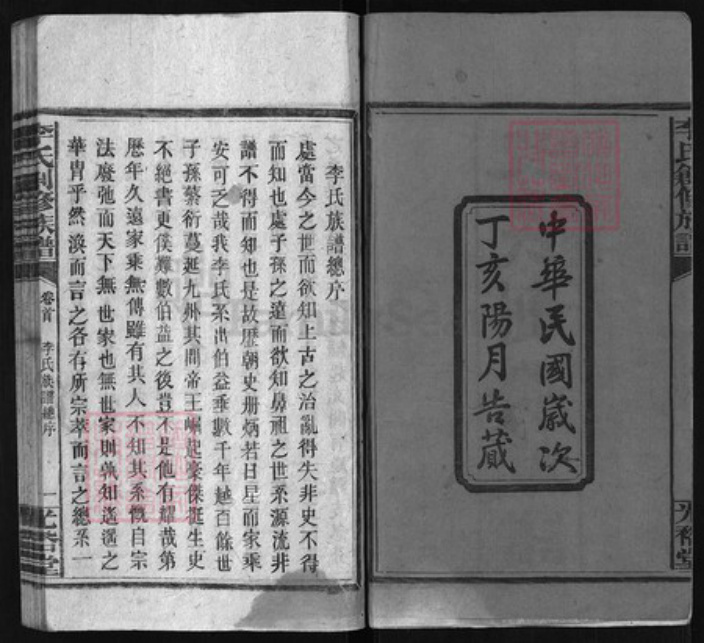 中華民國歲次
丁亥陽月告蕆
光裕堂
李氏族譜總序
處當今之世而欲知上古之治亂得失非史不得
而知也處子孫之遠而欲知鼻祖之世系源流非
譜不得而知也是故歷朝史册炳若日星而家乘
安可乏哉我李氏系出伯益垂數千年越百餘世
子孫蕃衍蔓延九州其間帝王崛起豪傑挺生史
不絕書更僕難數伯益之後豈不是他有耀哉第
歷年久遠家乘無傳雖有其人不知其系慨自宗
法廢弛而天下無世家也無世家則孰知遙遙之
華胄乎然渙而言之各有所宗萃而言之總系一
李氏創修族譜
卷首
李氏族譜總序
一
光裕堂